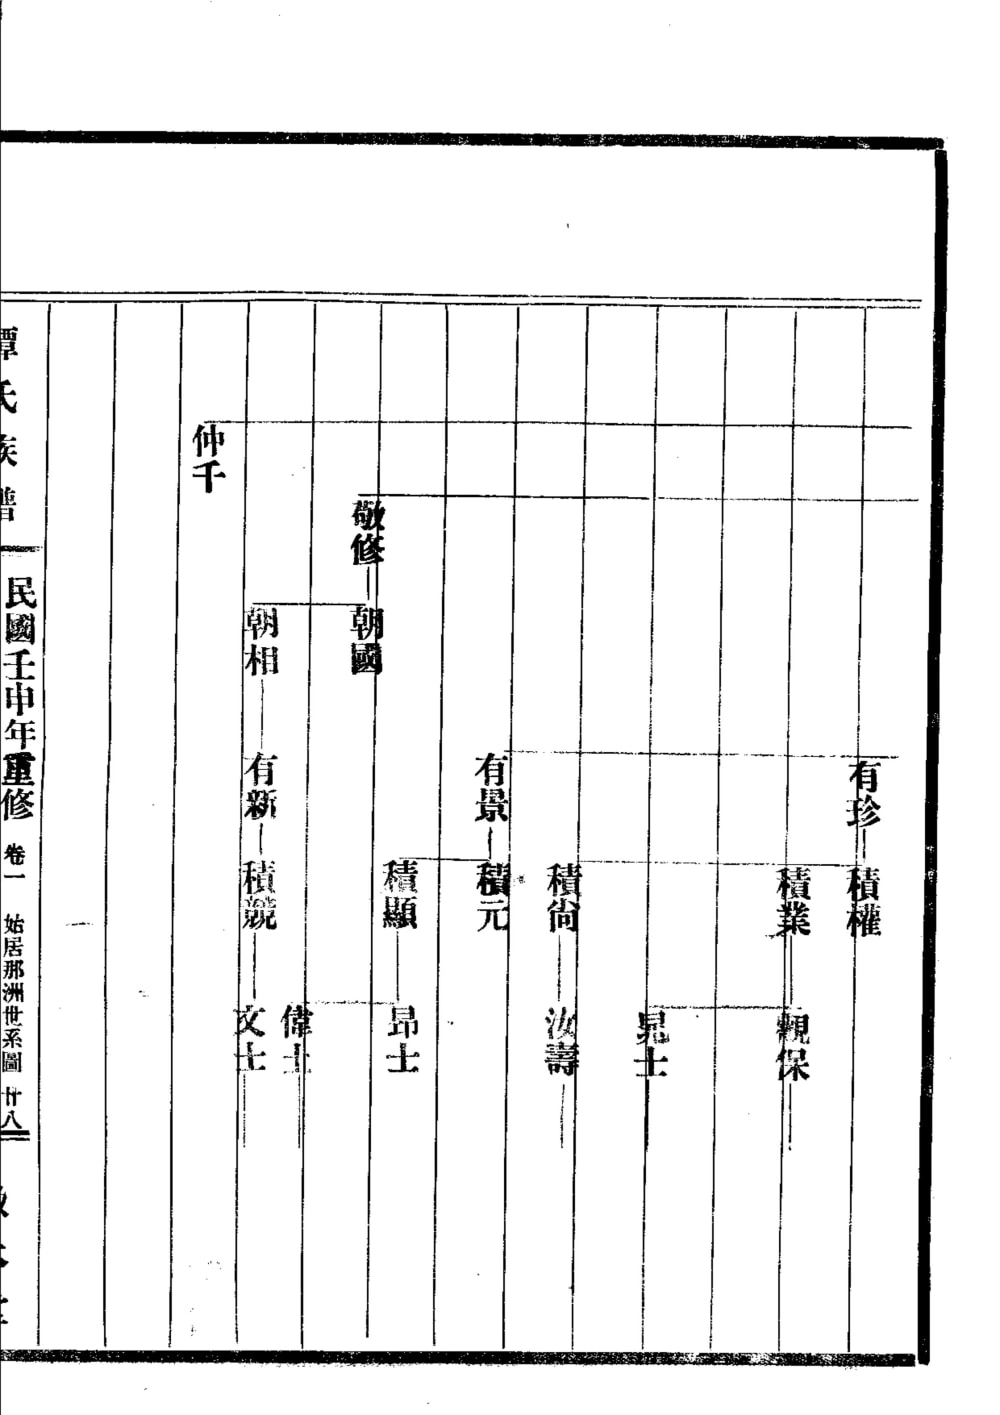 有珍
積權
積業
觀保
晃士
積尙
汝壽
有景
積元
積顯
昂士
偉士
敬修
朝國
朝相
有新
積競
文士
仲千
譚氏族譜
民國壬申年重修
卷一
始居那洲世系圖
廿八